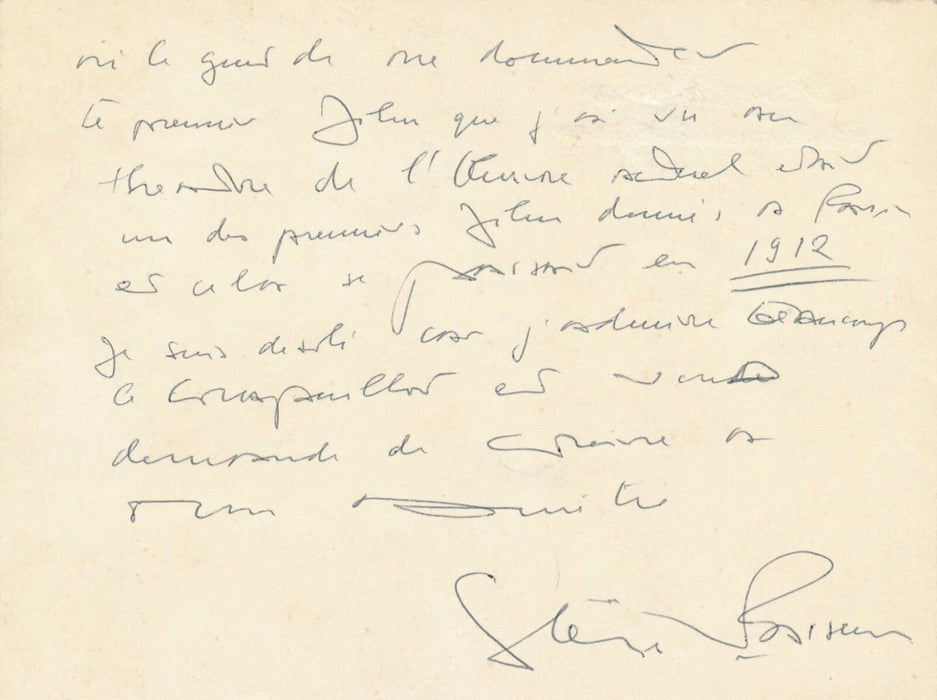 de me demander
le premier film que j'ai vu au
theatre de l'Oeuvre actuel était
un des premiers film donnés à Paris
et cela se passait en 1912
Je suis desolé car j'admire beaucoup
le Crapouillot et vous
demande de croire à
mon amitié
Stève Passeur